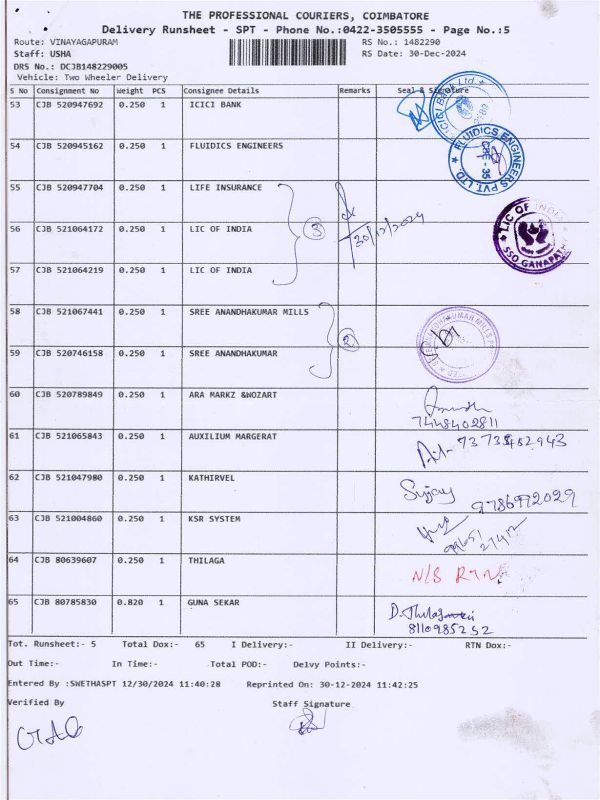 THE PROFESSIONAL COURIERS, COIMBATORE
Delivery Runsheet - SPT - Phone No.:0422-3505555 - Page No.:5
Route: VINAYAGAPURAM RS No.: 1482290
Staff: USHA RS Date: 30-Dec-2024
DRS No.: DCJB148229005
Vehicle: Two Wheeler Delivery
S No Consignment No Weight PCS Consignee Details Remarks Seal & Signature
53 CJB 520947692 0.250 1 ICICI BANK ICICI Bank Ltd.
54 CJB 520945162 0.250 1 FLUIDICS ENGINEERS FLUIDICS ENGINEERS PVT. LTD. CBE - 35
55 CJB 520947704 0.250 1 LIFE INSURANCE
56 CJB 521064172 0.250 1 LIC OF INDIA 3 30/12/2024 LIC OF INDIA SSO GANAPATHY
57 CJB 521064219 0.250 1 LIC OF INDIA
58 CJB 521067441 0.250 1 SREE ANANDHAKUMAR MILLS
59 CJB 520746158 0.250 1 SREE ANANDHAKUMAR 2
60 CJB 520789849 0.250 1 ARA MARKZ &NOZART 7448402811
61 CJB 521065843 0.250 1 AUXILIUM MARGERAT
62 CJB 521047980 0.250 1 KATHIRVEL Sujay 9786992029
63 CJB 521004860 0.250 1 KSR SYSTEM
64 CJB 80639607 0.250 1 THILAGA N/S RTN
65 CJB 80785830 0.820 1 GUNA SEKAR 8110985252
Tot. Runsheet:- 5 Total Dox:- 65 I Delivery:- II Delivery:- RTN Dox:-
Out Time:- In Time:- Total POD:- Delvy Points:-
Entered By :SWETHASPT 12/30/2024 11:40:28 Reprinted On: 30-12-2024 11:42:25
Verified By Staff Signature